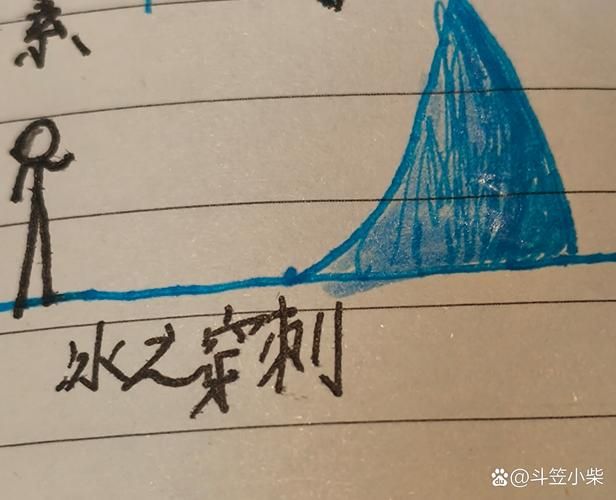 冰之穿刺
du @斗笠小柴